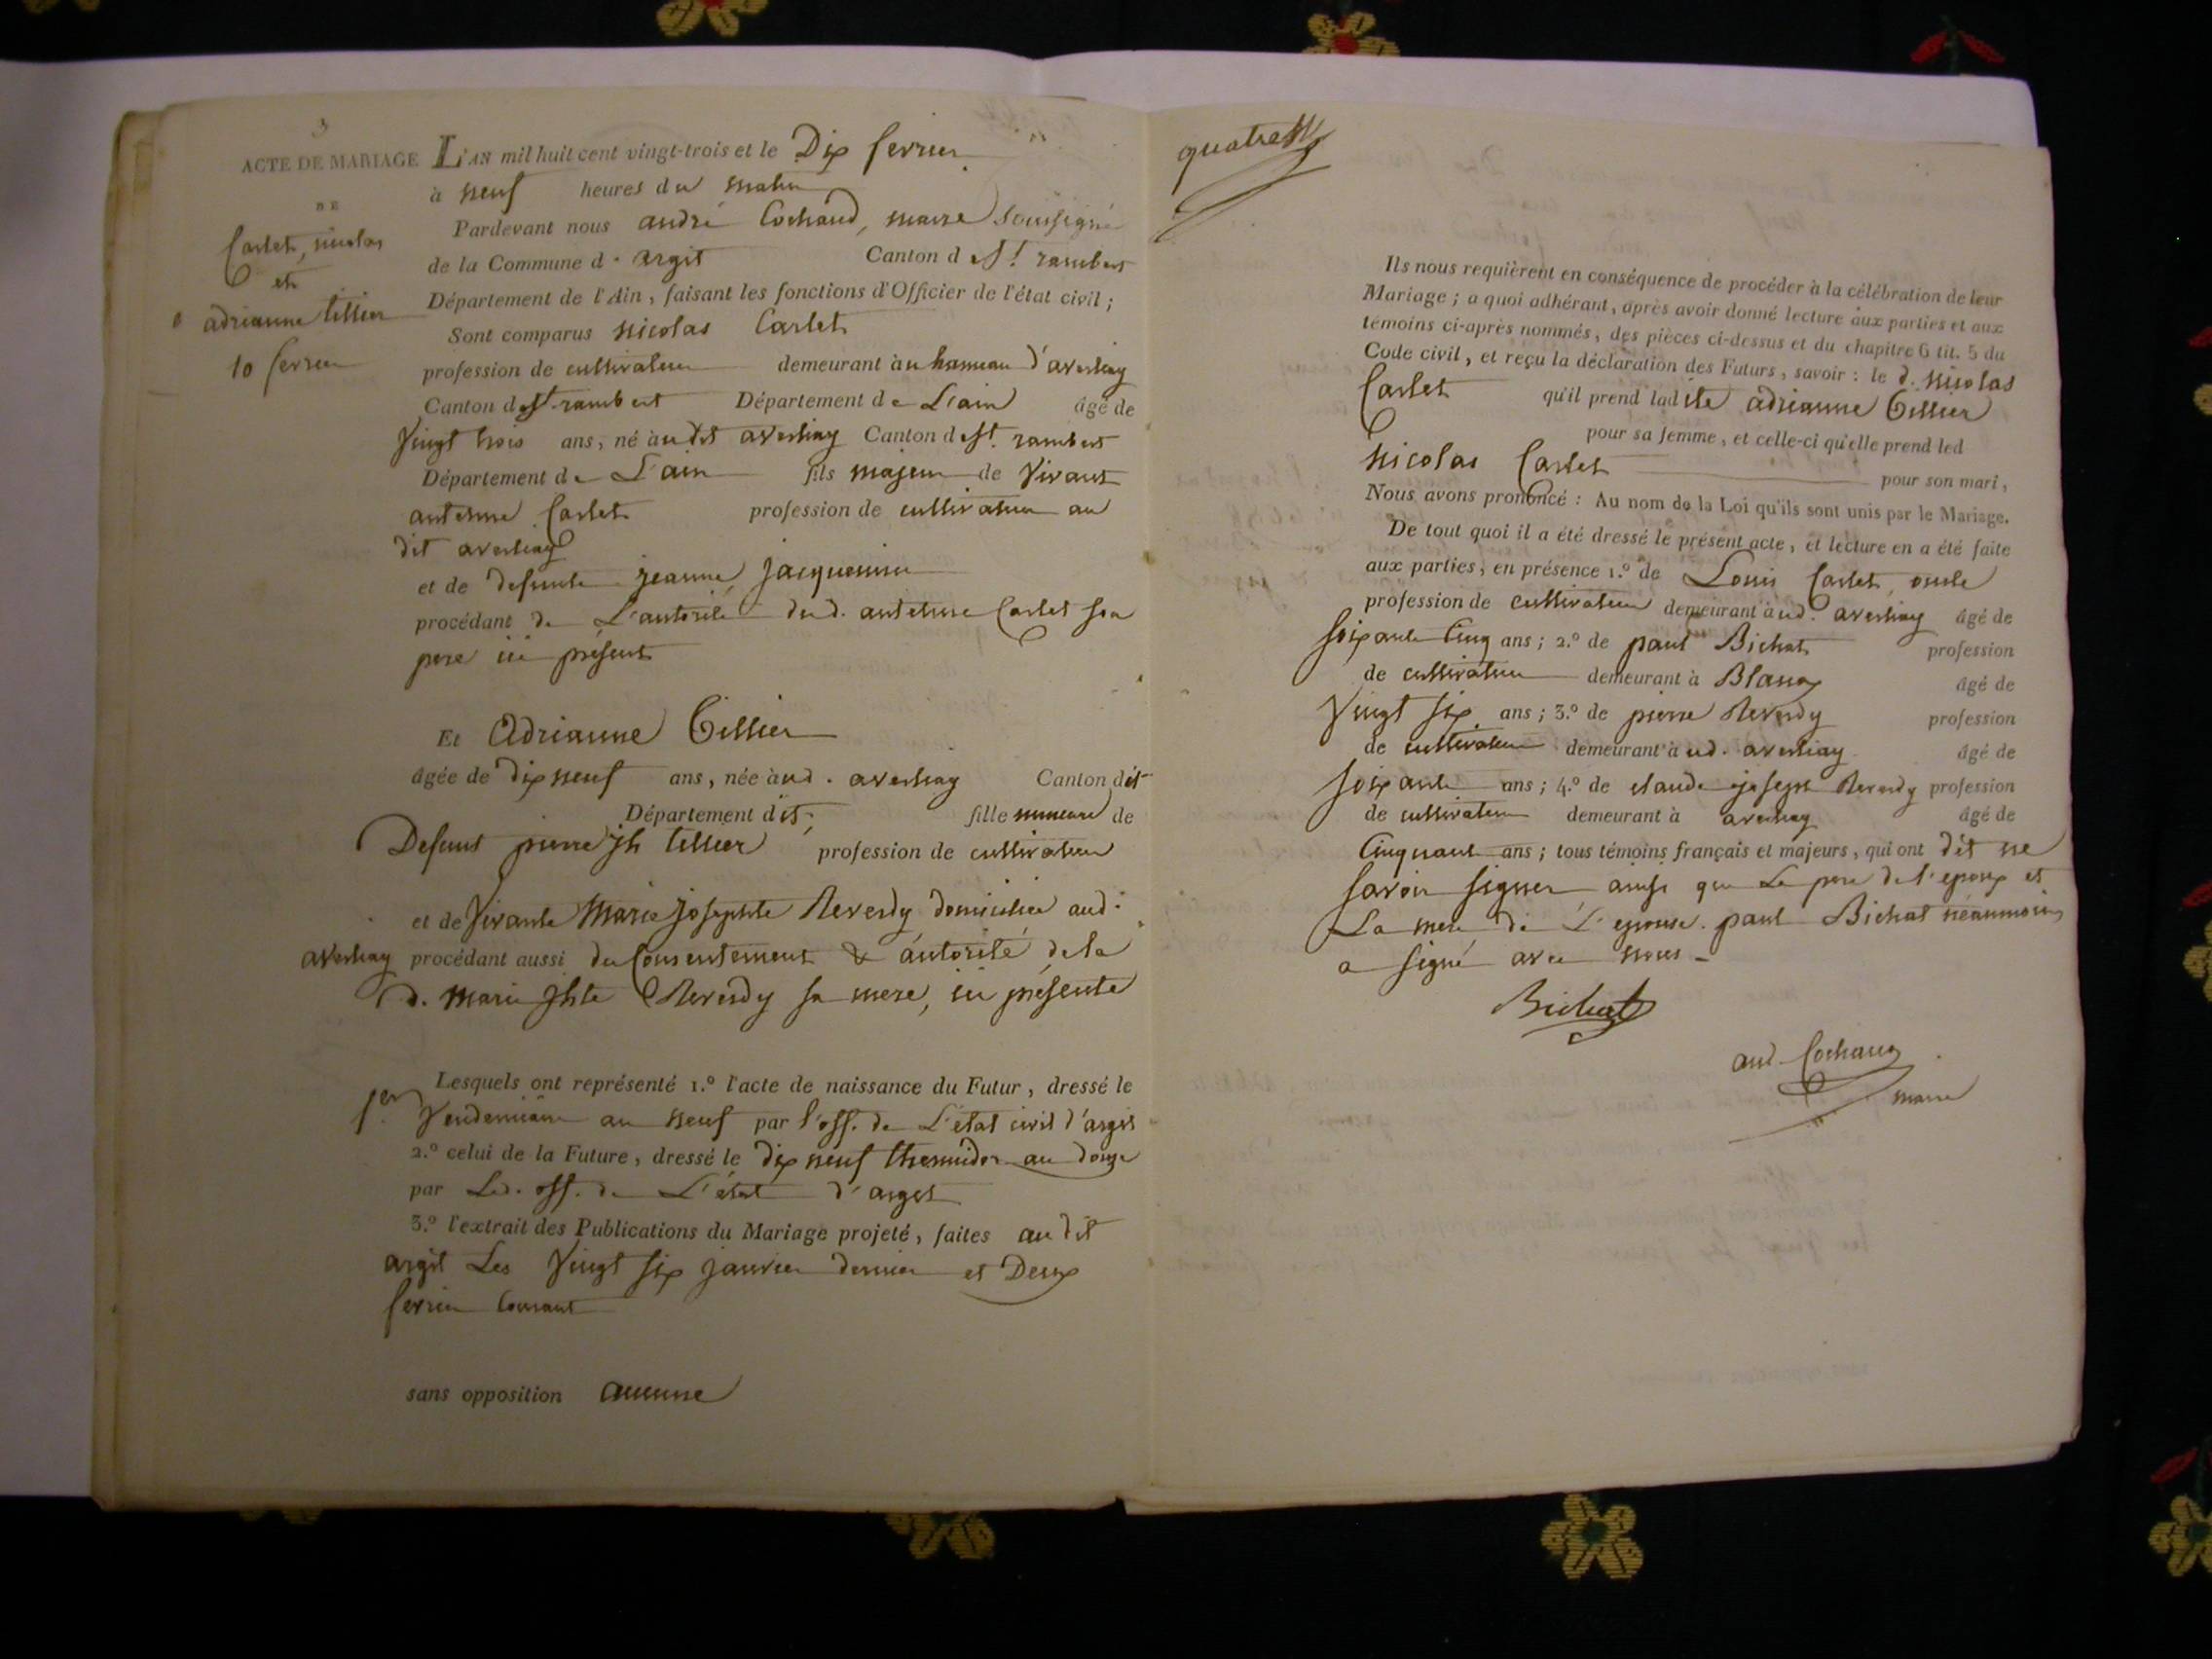 3
ACTE DE MARIAGE
DE
Carlet, nicolas
et
adrianne tillier
10 fevrier
L'AN mil huit cent vingt-trois et le Dix fevrier
à neuf heures du matin
Pardevant nous andré Cochaud, maire soussigné
de la Commune d'argit Canton de St. rambert
Département de l'Ain, faisant les fonctions d'Officier de l'état civil;
Sont comparus nicolas Carlet
profession de cultivateur demeurant à u hameau d'averliay
Canton de St. rambert Département de L'ain âgé de
Vingt trois ans, né àudit averliay Canton de St. rambert
Département de L'ain fils majeur de Vivant
antelme Carlet profession de cultivateur au
dit averliay
et de defunte jeanne jacquemin
procédant de L'autorité dud. antelme Carlet son
pere ici présent
Et Adrianne Tillier
âgée de dix neuf ans, née àud. averliay Canton dit
Département dit, fille mineure de
Defunt pierre jh tillier profession de cultivateur
et de Vivante Marie josephte Reverdy domiciliée aud.
averliay procédant aussi du Consentement & autorité de la
d. marie jhte Reverdy sa mere, ici présente
Lesquels ont représenté 1.º l'acte de naissance du Futur, dressé le
1er. Vendemiaire an neuf par l'off. de L'état civil d'argis
2.º celui de la Future, dressé le dix neuf thermidor an douze
par Led. off. de L'état d'argit
3.º l'extrait des Publications du Mariage projeté, faites audit
argit Les Vingt six janvier dernier et Deux
fevrier Courant
sans opposition aucune
quatre
Ils nous requièrent en conséquence de procéder à la célébration de leur
Mariage; a quoi adhérant, après avoir donné lecture aux parties et aux
témoins ci-après nommés, des pièces ci-dessus et du chapitre 6 tit. 5 du
Code civil, et reçu la déclaration des Futurs, savoir: le d. nicolas
Carlet qu'il prend ladite adrianne Tillier
pour sa femme, et celle-ci qu'elle prend led
nicolas Carlet pour son mari,
Nous avons prononcé: Au nom de la Loi qu'ils sont unis par le Mariage.
De tout quoi il a été dressé le présent acte, et lecture en a été faite
aux parties, en présence 1.º de Louis Carlet, oncle
profession de cultivateur demeurant àud. averliay âgé de
soixante Cinq ans; 2.º de paul Bichat profession
de cultivateur demeurant à Blanaz âgé de
Vingt six ans; 3.º de pierre Reverdy profession
de cultivateur demeurant àud. averliay âgé de
soixante ans; 4.º de claude joseph Reverdy profession
de cultivateur demeurant à averliay âgé de
Cinquante ans; tous témoins français et majeurs, qui ont dit ne
savoir signer ainsi que Le pere de l'epoux et
La mere de L'epouse. paul Bichat néanmoins
a signé avec nous
Bichat
and. Cochaud
maire